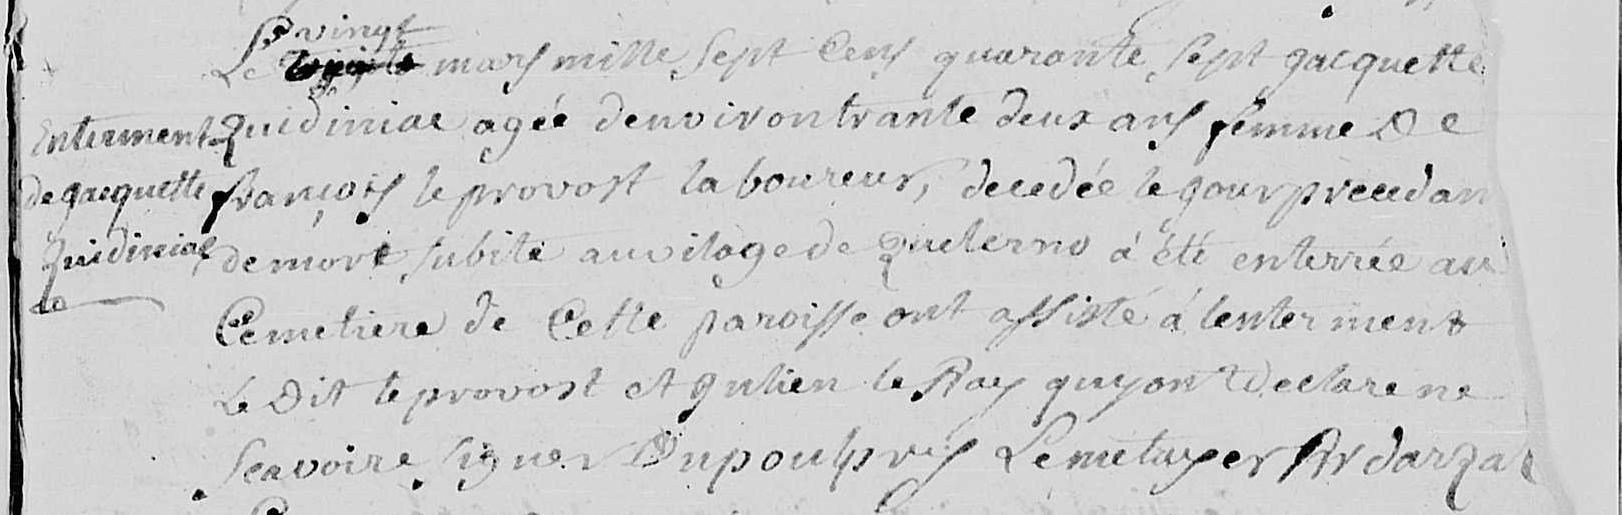 Enterment
de Jacquette
Quidiniac
Le vingt mars mille sept cens quarante sept Jacquette
Quidiniac agée denviron trante deux ans femme De
françois le provost laboureur, decedée le jour precedan
de mort subite au vilage de Queterno á été enterrée au
Cemetiere de Cette paroisse ont assisté á lenterment
Le Dit le provost et Julien le Ray quy ont declare ne
scavoire signer
Le metayer